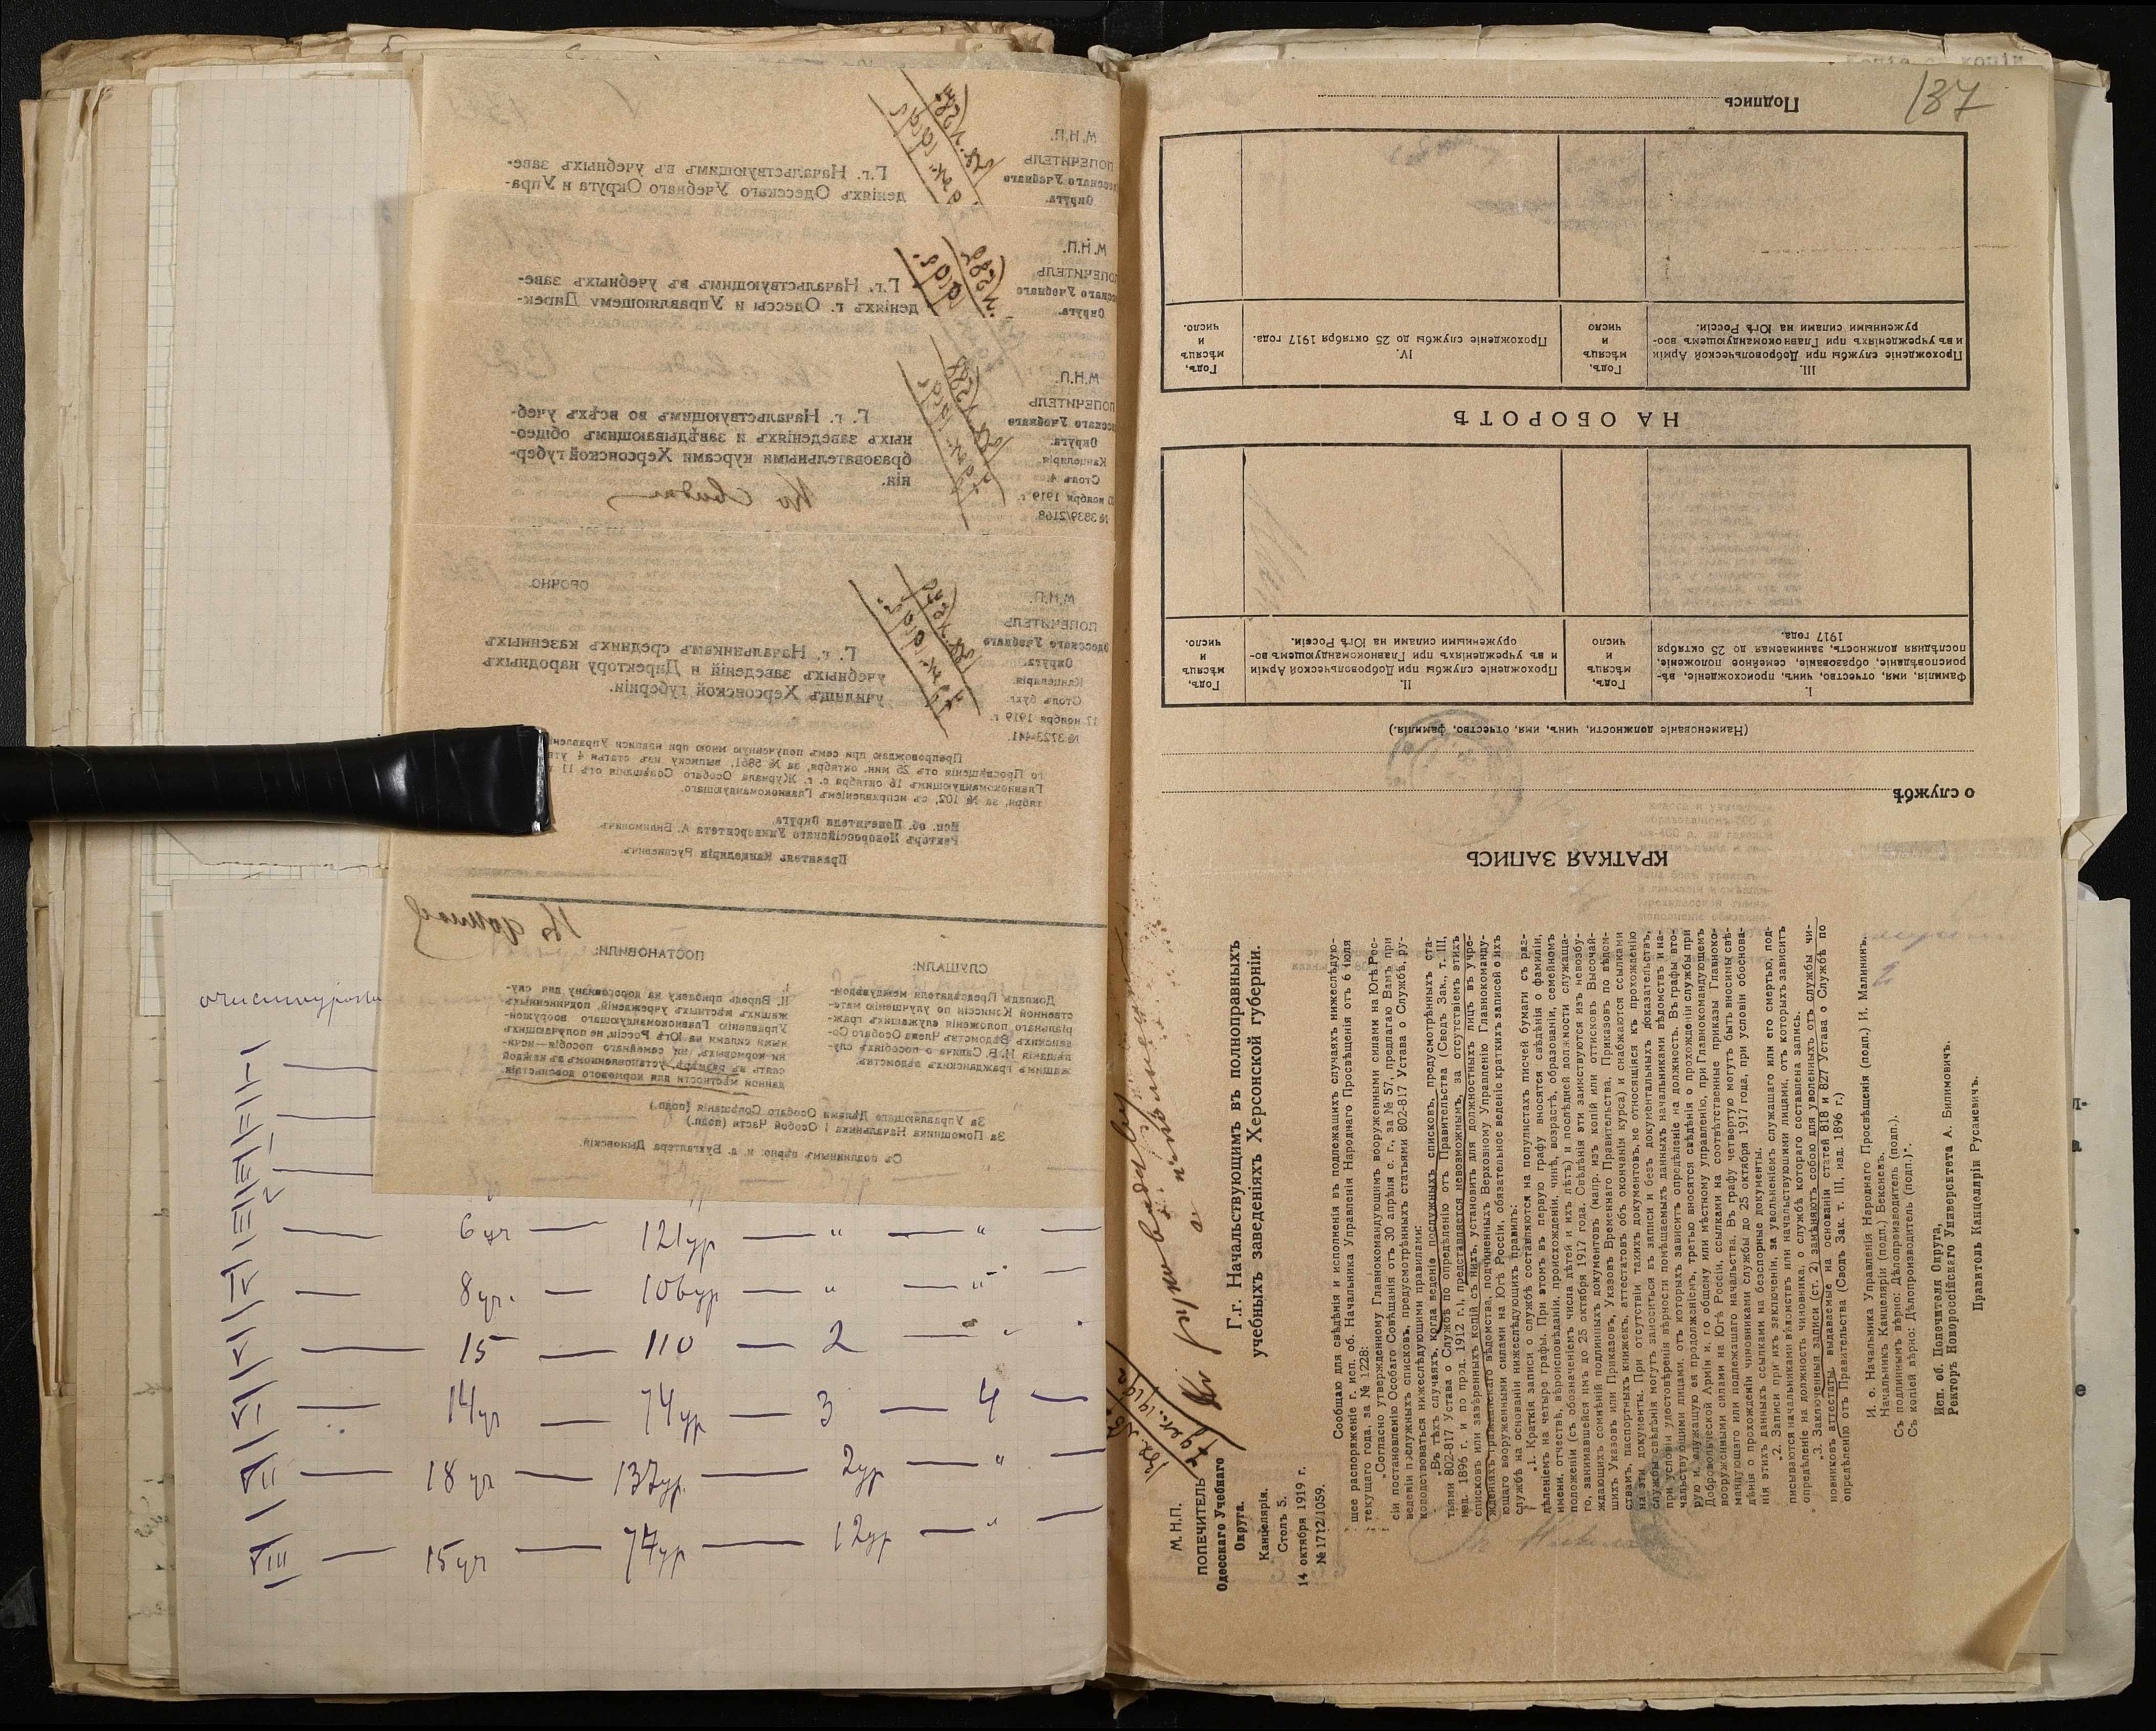 М.Н.П.
ПОПЕЧИТЕЛЬ
Учебнаго
Округа.
Г.г. Начальствующимъ въ учебныхъ заве-
деніяхъ Одесскаго Учебнаго Округа и Упра-
М.Н.П.
ПОПЕЧИТЕЛЬ
Учебнаго
Округа.
Г.г. Начальствующимъ въ учебныхъ заве-
деніяхъ г. Одессы и Управляющему Дирек-
М.Н.П.
ПОПЕЧИТЕЛЬ
Учебнаго
Округа.
Канцелярія.
Столъ 4.
ноября 1919 г.
№ 3839/2168
Г. г. Начальствующимъ во всѣхъ учеб-
ныхъ заведеніяхъ и завѣдывающимъ общео-
бразовательными курсами Херсонской губер-
ніи.
СРОЧНО.
М.Н.П.
ПОПЕЧИТЕЛЬ
Одесскаго Учебнаго
Округа.
Канцелярія.
Столъ бухг.
17 ноября 1919 г.
№ 3723-441
Г. г. Начальникамъ среднихъ казенныхъ
учебныхъ заведеній и Директору народныхъ
училищъ Херсонской губерніи.
Препровождаю при семъ полученную мною при надписи
го Просвѣщенія отъ 25 мин. октября, за № 5861, выписку изъ статьи 4
Главнокомандующимъ 16 октября с. г. Журнала Особаго Совѣщанія отъ 11
тября, за № 102, съ исправленіемъ Главнокомандующаго.
Исп. об. Попечителя Округа,
Ректоръ Новороссійскаго Университета А. Билимовичъ.
Правитель Канцеляріи Русаневичъ
СЛУШАЛИ:
Докладъ Предсѣдателя междувѣдом-
ственной Комиссіи по улучшенію мате-
ріальнаго положенія служащихъ граж-
данскихъ Вѣдомствъ Члена Особаго Со-
вѣщанія Н. В. Савича о пособіяхъ слу-
жащимъ гражданскихъ вѣдомствъ.
ПОСТАНОВИЛИ:
II. Впредь прибавку на дороговизну для слу-
жащихъ мѣстныхъ учрежденій, подчиненныхъ
Управленію Главнокомандующаго вооружен-
ными силами на Югѣ Россіи, не получающихъ
ни кормовыхъ, ни семейнаго пособія—исчи-
слять въ размѣрѣ, установленномъ въ каждой
данной мѣстности для кормового довольствія.
За Управляющаго Дѣлами Особаго Совѣщанія (подп.)
За Помощника Начальника I Особой Части (подп.)
Съ подлиннымъ вѣрно: и. д. Бухгалтера Дыновскій
6 уч — 121 ур — " — " —
8 уч. — 106 ур — " — " —
15 — 110 — 2 "
VI — 14 уч — 74 ур — 3 — 4 —
VII — 18 уч — 137 ур. — 2 ур — " —
VIII — 15 уч — 74 ур — 12 ур — " —
137
М.Н.П.
ПОПЕЧИТЕЛЬ
Одесскаго Учебнаго
Округа.
Канцелярія.
Столъ 5.
14 октября 1919 г.
№ 1712/1059.
Г.г. Начальствующимъ въ полноправныхъ
учебныхъ заведеніяхъ Херсонской губерніи.
Сообщаю для свѣдѣнія и исполненія въ подлежащихъ случаяхъ нижеслѣдую-
щее распоряженіе г. исп. об. Начальника Управленія Народнаго Просвѣщенія отъ 6 іюля
текущаго года, за № 1228:
„Согласно утвержденному Главнокомандующимъ вооруженными силами на Югѣ Рос-
сіи постановленію Особаго Совѣщанія отъ 30 апрѣля с. г., за № 57, предлагаю Вамъ при
веденіи послужныхъ списковъ, предусмотрѣнныхъ статьями 802-817 Устава о Службѣ, ру-
ководствоваться нижеслѣдующими правилами:
„Въ тѣхъ случаяхъ, когда веденіе послужныхъ списковъ, предусмотрѣнныхъ ста-
тьями 802-817 Устава о Службѣ по опредѣленію отъ Правительства (Сводъ Зак., т. III,
изд. 1896 г. и по прод. 1912 г.), представляется невозможнымъ, за отсутствіемъ этихъ
списковъ или завѣренныхъ копій съ нихъ, установить для должностныхъ лицъ въ учре-
жденіяхъ гражданскаго вѣдомства, подчиненныхъ Верховному Управленію Главнокоманду-
ющаго вооруженными силами на Югѣ Россіи, обязательное веденіе краткихъ записей о ихъ
службѣ на основаніи нижеслѣдующихъ правилъ:
„1. Краткія записи о службѣ составляются на полулистахъ писчей бумаги съ раз-
дѣленіемъ на четыре графы. При этомъ въ первую графу вносятся свѣдѣнія о фамиліи,
имени, отчествѣ, вѣроисповѣданіи, происхожденіи, чинѣ, возрастѣ, образованіи, семейномъ
положеніи (съ обозначеніемъ числа дѣтей и ихъ лѣтъ) и послѣдней должности служаща-
го, занимавшейся имъ до 25 октября 1917 года. Свѣдѣнія эти заимствуются изъ невозбу-
ждающихъ сомнѣній подлинныхъ документовъ (напр. изъ копій или оттисковъ Высочай-
шихъ Указовъ или Приказовъ, Указовъ Временнаго Правительства, Приказовъ по вѣдом-
ствамъ, паспортныхъ книжекъ, аттестатовъ объ окончаніи курса) и снабжаются ссылками
на эти документы. При отсутствіи такихъ документовъ, не относящіяся къ прохожденію
службы свѣдѣнія могутъ заноситься въ записи и безъ документальныхъ доказательствъ,
при условіи удостовѣренія вѣрности помѣщаемыхъ данныхъ начальниками вѣдомствъ и на-
чальствующими лицами, отъ которыхъ зависитъ опредѣленіе на должность. Въ графы вто-
рую и, служащую ея продолженіемъ, третью вносятся свѣдѣнія о прохожденіи службы при
Добровольческой Арміи и, по общему или мѣстному управленію, при Главнокомандующемъ
вооруженными силами на Югѣ Россіи, ссылками на соотвѣтственные приказы Главноко-
мандующаго или подлежащаго начальства. Въ графу четвертую могутъ быть вносимы свѣ-
дѣнія о прохожденіи чиновниками службы до 25 октября 1917 года, при условіи обоснова-
нія этихъ данныхъ ссылками на безспорные документы.
„2. Записи при ихъ заключеніи, за увольненіемъ служащаго или его смертью, под-
писываются начальниками вѣдомствъ или начальствующими лицами, отъ которыхъ зависитъ
опредѣленіе на должность чиновника, о службѣ котораго составлена запись.
„3. Заключенныя записи (ст. 2) замѣняютъ собою для уволенныхъ отъ службы чи-
новниковъ аттестаты, выдаваемые на основаніи статей 818 и 827 Устава о Службѣ по
опредѣленію отъ Правительства (Сводъ Зак. т. III, изд. 1896 г.)
И. о. Начальника Управленія Народнаго Просвѣщенія (подп.) И. Малининъ.
Начальникъ Канцеляріи (подп.) Бекеневъ.
Съ подлиннымъ вѣрно: Дѣлопроизводитель (подп.).
Съ копіей вѣрно: Дѣлопроизводитель (подп.)".
Исп. об. Попечителя Округа,
Ректоръ Новороссійскаго Университета А. Билимовичъ.
Правитель Канцеляріи Русаневичъ.
КРАТКАЯ ЗАПИСЬ
о службѣ
(Наименованіе должности, чинъ, имя, отчество, фамилія.)
I.
Фамилія, имя, отчество, чинъ, происхожденіе, вѣ-
роисповѣданіе, образованіе, семейное положеніе,
послѣдняя должность, занимаемая до 25 октября
1917 года.
Годъ,
мѣсяцъ
и
число
II.
Прохожденіе службы при Добровольческой Арміи
и въ учрежденіяхъ при Главнокомандующемъ во-
оруженными силами на Югѣ Россіи.
Годъ,
мѣсяцъ
и
число.
НА ОБОРОТѢ
III.
Прохожденіе службы при Добровольческой Арміи
и въ учрежденіяхъ при Главнокомандующемъ воо-
руженными силами на Югѣ Россіи.
Годъ,
мѣсяцъ
и
число
IV.
Прохожденіе службы до 25 октября 1917 года.
Годъ,
мѣсяцъ
и
число.
Подпись